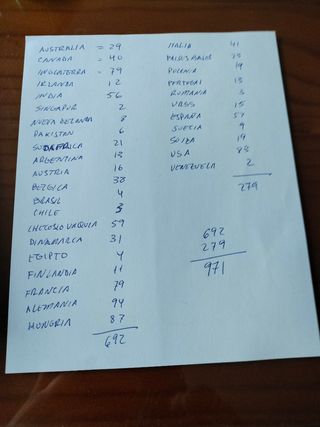 AUSTRALIA = 29
CANADA = 40
INGLATERRA = 79
IRLANDA 12
INDIA 56
SINGAPUR 2
NUEVA ZELANDA 8
PAKISTAN 6
SUDAFRICA 21
ARGENTINA 13
AUSTRIA 16
BELGICA 38
BRASIL 4
CHILE 3
CHECOSLOVAQUIA 59
DINAMARCA 31
EGIPTO 4
FINLANDIA 11
FRANCIA 79
ALEMANIA 94
HUNGRIA 87
692
ITALIA 41
PAISES BAJOS
POLONIA 19
PORTUGAL 13
RUMANIA 3
URSS 15
ESPAÑA 57
SUECIA 9
SUIZA 19
USA 83
VENEZUELA 2
279
692
279
971